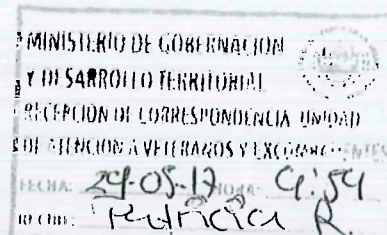 MINISTERIO DE GOBERNACION
Y DESARROLLO TERRITORIAL
RECEPCION DE CORRESPONDENCIA UNIDAD
DE ATENCION A VETERANOS Y EXCOMBATIENTES
FECHA: 29-05-17 HORA: 9:54
RECIBE: Patricia R.